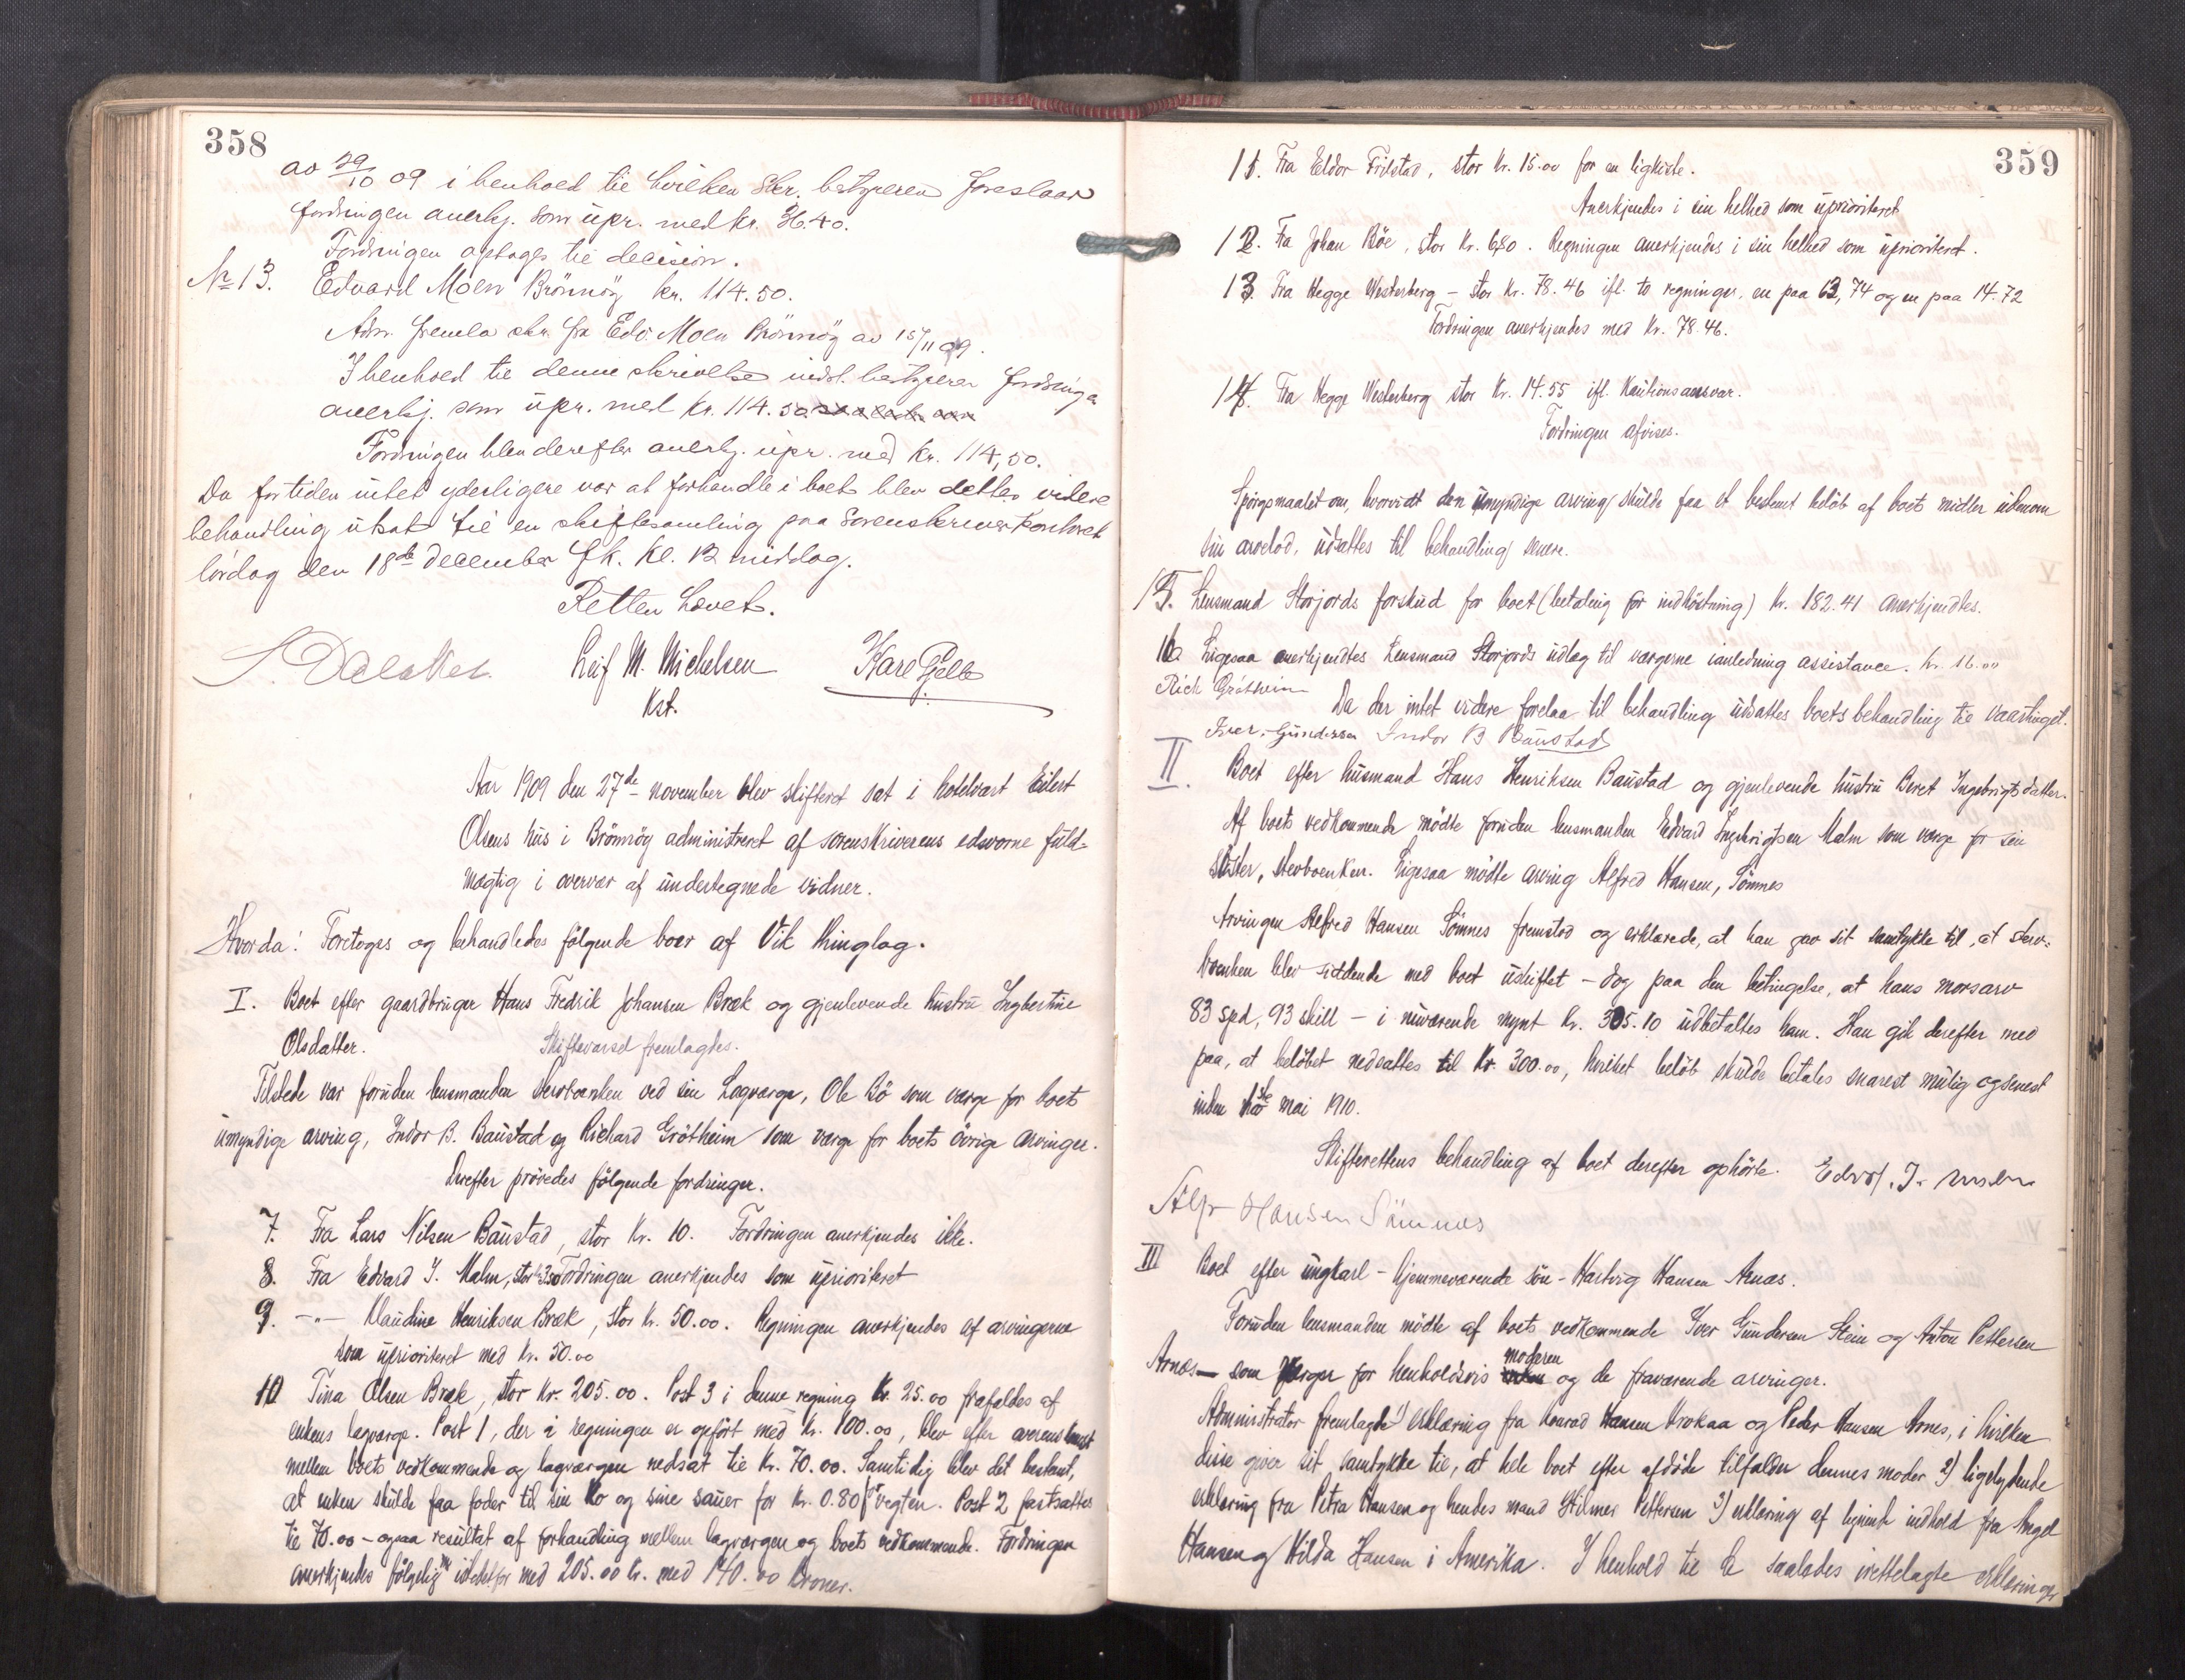 358
av 29/10 09 i henhold til hvilken skr. bestyreren foreslaar
fordringen anerkj. som upr. med kr. 36.40.
Fordringen optages til decision.
No 13. Edvard Moen Brönnöy kr. 114.50.
Adm. fremla skr. fra Edv. Moen Brönnöy av 15/11 09.
I henhold til denne skrivelse indst. bestyreren fordringen
anerkj. som upr. med kr. 114.50
Fordringen blev derefter anerkj. upr. med kr. 114,50.
Da for tiden intet yderligere var at forhandle i boet blev dettes videre
behandling utsat til en skiftesamling paa Sorenskriverkontoret
lördag den 18de december fk. kl. 12 middag.
Retten hævet.
Leif M. Michelsen Karl Pjelle
Kst.
Aar 1909 den 27de november blev skifteret sat i hotelvært Eilert
Olsens hus i Brönnöy administreret af sorenskriverens edsvorne fuld-
mægtig i overvær af undertegnede vidner.
Hvorda: Foretoges og behandledes följende boer af Vik thinglag.
I. Boet efter gaardbruger Hans Fredrik Johansen Bræk og gjenlevende hustru Ingbertine
Olsdatter. Skiftevarsel fremlagdes.
Tilstede var foruden lensmanden stervboenken ved sin Lagværge, Ole Bö som værge for boets
umyndige arving, Indor B. Baustad og Richard Gröttheim som værge for boets övrige arvinger.
Derefter prövedes följende fordringer.
7. Fra Lars Nilsen Baustad, stor kr. 10. Fordringen anerkjendes ikke.
8. Fra Edvard I. Malm, stor 3.50 Fordringen anerkjendes som uprioriteret
9. -"- Klaudine Henriksen Bræk, stor kr. 50.00. Regningen anerkjendes af arvingerne
som uprioriteret med kr. 50.00
10 Tina Olsen Bræk, stor kr. 205.00. Post 3 i denne regning kr. 25.00 frafaldes af
enkens lagværge. Post 1, der i regningen er opfört med kr. 100.00, blev efter overenskomst
mellem boets vedkommende og lagværgen nedsat til kr. 70.00. Samtidig blev det bestemt,
at enken skulde faa foder til sin ko og sine sauer for kr. 0.80 pr vegten. Post 2 fastsattes
til 70.00 - ogsaa resultat af forhandling mellem lagværgen og boets vedkommende. Fordringen
anerkjendes fölgelig istedetfor med 205.00 kr. med 140.00 kroner.
359
11. Fra Eldor Fridstad, stor kr. 15.00 for en ligkiste.
Anerkjendes i sin helhed som uprioriteret
12. Fra Johan Böe, stor kr. 6,80. Regningen anerkjendes i sin helhed som uprioriteret.
13. Fra Hegge Westerberg - stor kr. 78.46 ifl. to regninger, en paa 63,74 og en paa 14.72
Fordringen anerkjendes med kr. 78.46.
14. Fra Hegge Westerberg stor kr. 14.55 ifl. Kautionsansvar.
Fordringen afvises.
Spörgsmaalet om, hvorvidt den umyndige arving skulde faa et bestemt belöb af boets midler udenom
sin arvelod, udsattes til behandling senere.
15. Lensmand Storjords forskud for boet (betaling for indhöstning) kr. 182.41 anerkjendtes.
16. Ligesaa anerkjendtes Lensmand Storjords udlæg til værgerne ianledning assistance. kr. 16.00
Rich Gröttheim
Da der intet videre forelaa til behandling udsattes boets behandling til vaartinget.
Iver Gundersen Indor B Baustad
II. Boet efter husmand Hans Henriksen Baustad og gjenlevende hustru Beret Ingebrigtsdatter.
Af boets vedkommende mödte foruden lensmanden Edvard Ingebrigtsen Malm som værge for sin
söster, stervboenken. Ligesaa mödte arving Alfred Hansen, Sömnes
Arvingen Alfred Hansen Sömnes fremstod og erklærede, at han gav sit samtykke til, at sterv-
boenken blev siddende med boet uskiftet - dog paa den betingelse, at hans morsarv
83 spd, 93 skill - i nuværende mynt kr. 335.10 udbetaltes ham. Han gik derefter med
paa, at belöbet nedsattes til kr. 300.00, hvilket belöb skulde betales snarest mulig og senest
inden 1ste mai 1910.
Skifterettens behandling af boet derefter ophörte. Edvd. I. Malm
Alfr Hansen Sömnes
III Boet efter ungkarl - hjemmeværende sön - Hartvig Hansen Arnæs.
Foruden lensmanden mödte af boets vedkommende Iver Gundersen Stein og Anton Pettersen
Arnæs - som værger for henholdsvis moderen og de fraværende arvinger.
Administrator fremlagde 1) erklæring fra Konrad Hansen Krokaa og Peder Hansen Arnes, i hvilken
disse giver sit samtykke til, at hele boet efter afdöde tilfalder dennes moder 2) ligelydende
erklæring fra Petra Hansen og hendes mand Hilmer Pettersen 3) erklæring af lignende indhold fra Angel
Hansen og Hilda Hansen i Amerika. I henhold til de saaledes irettelagte erklæringer